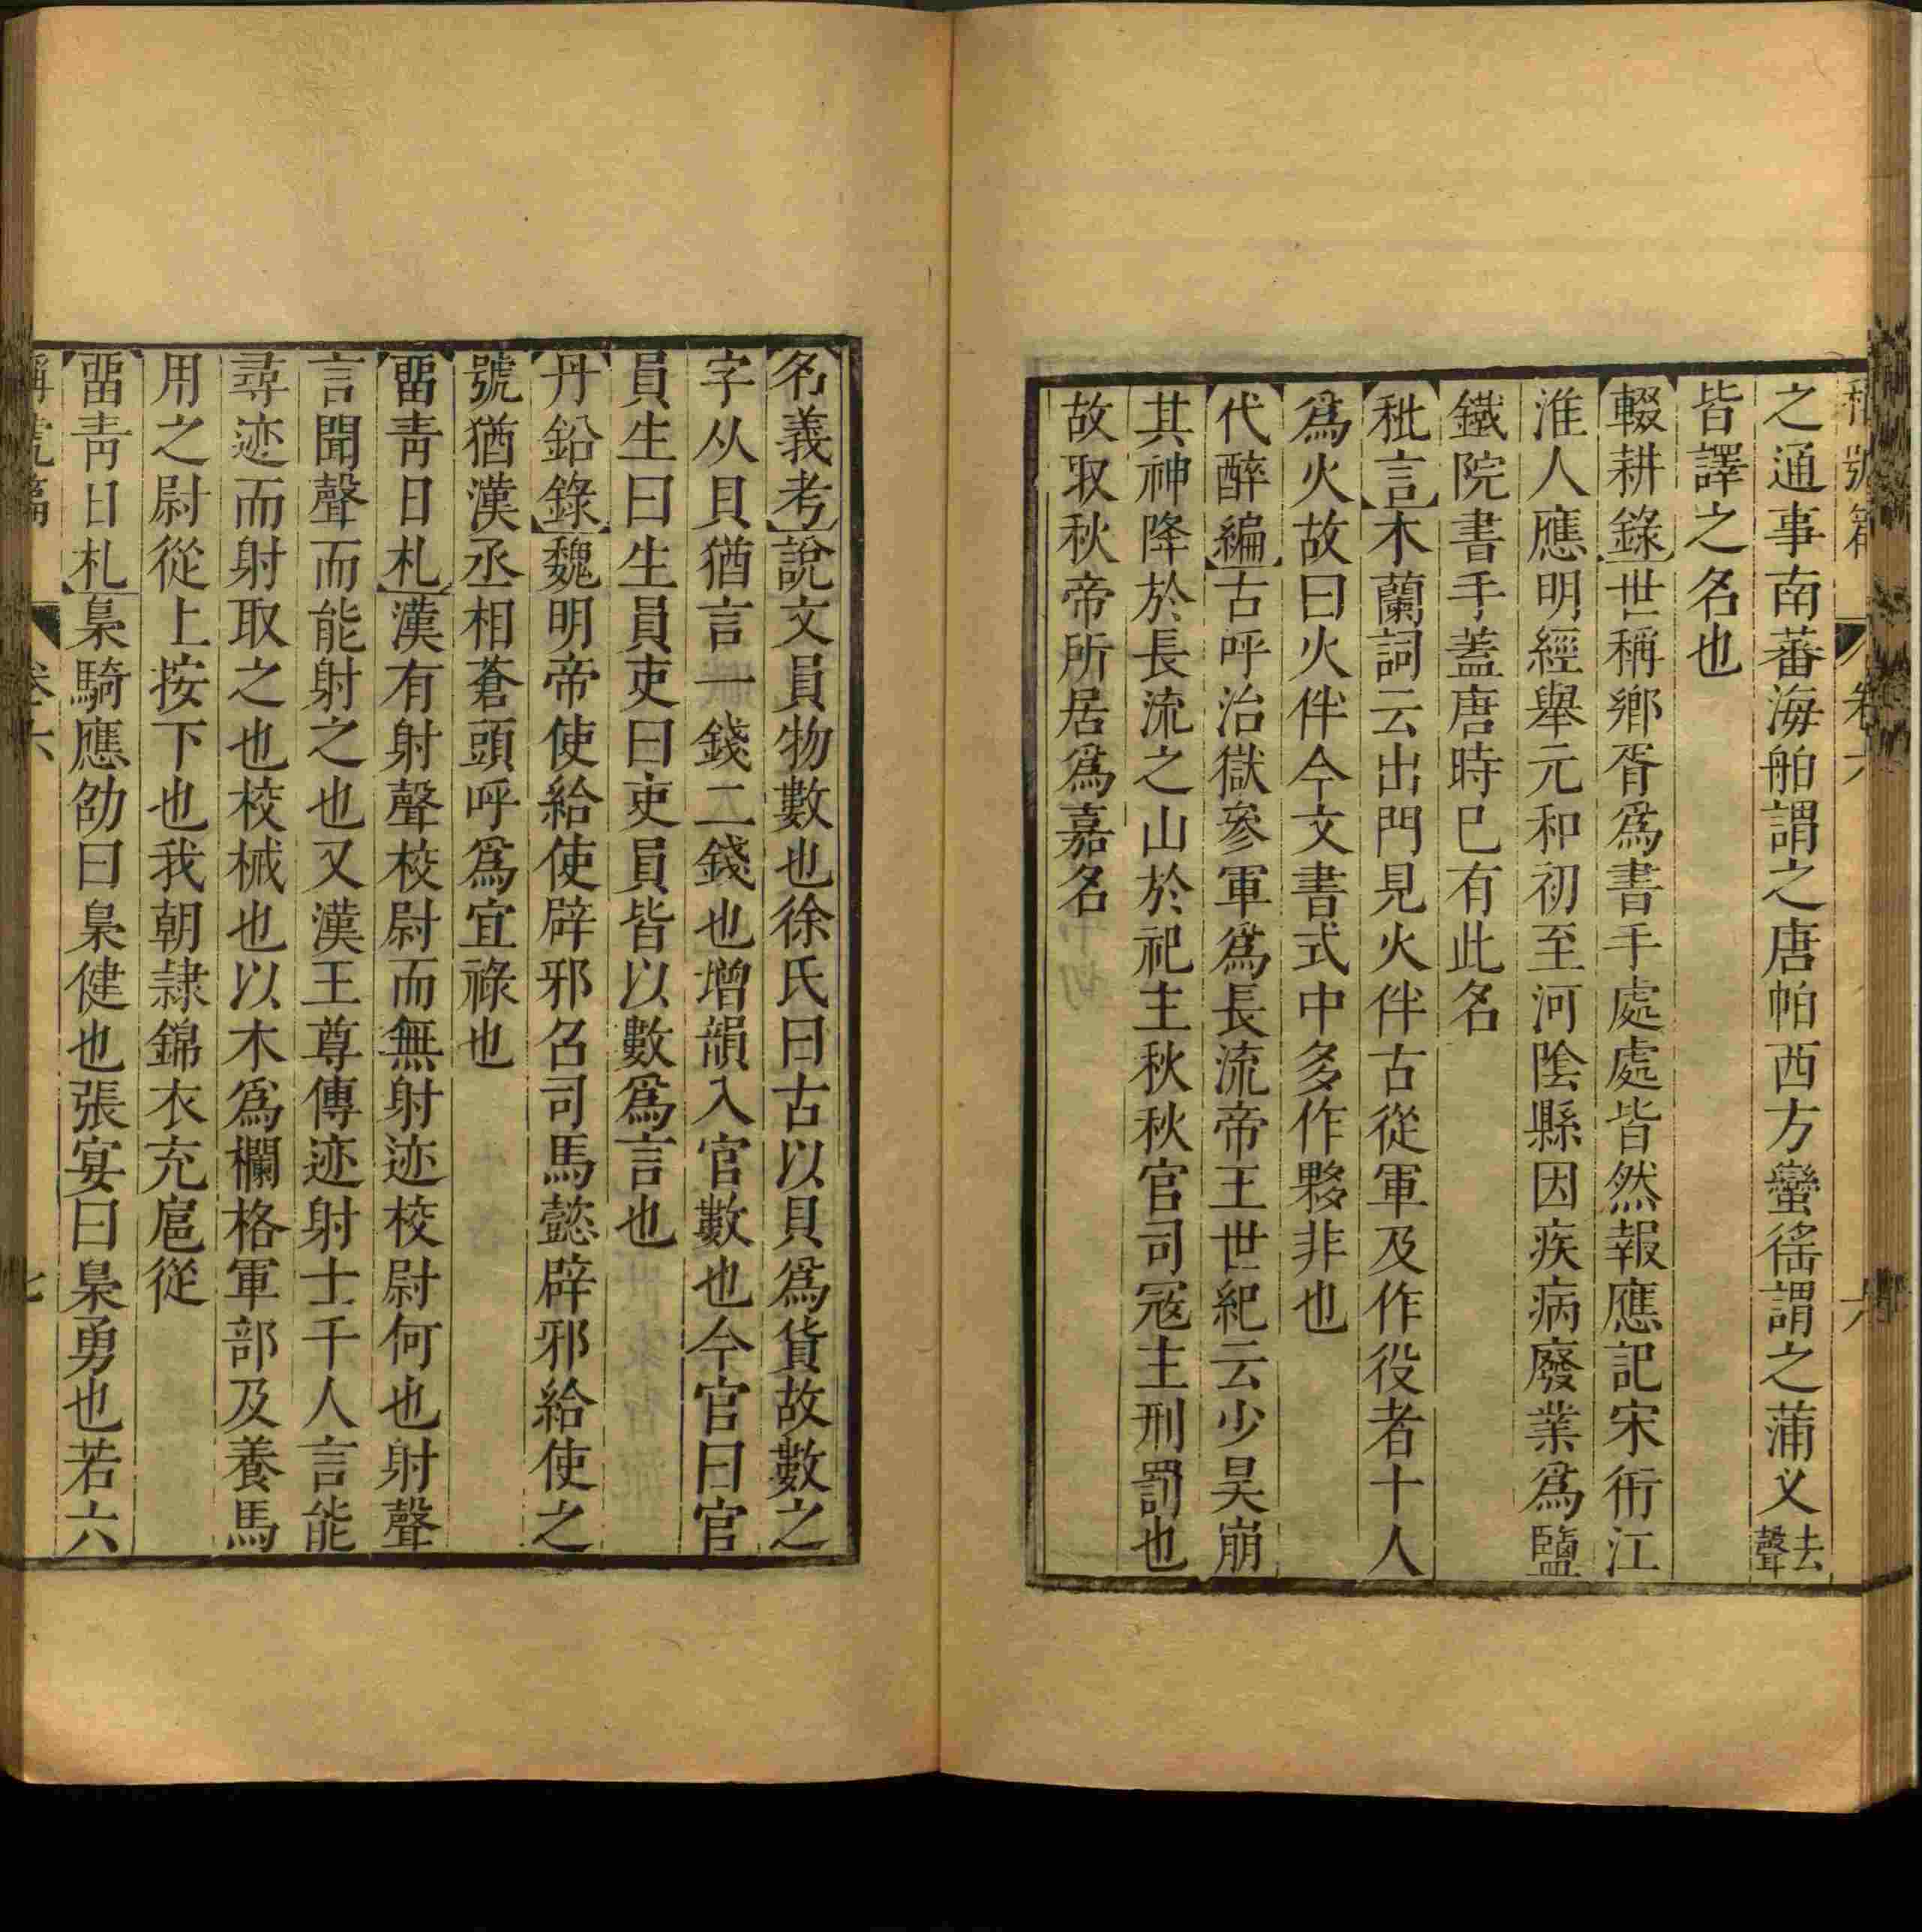 稱號篇 卷六 六
之通事南蕃海舶謂之唐帕西方蠻徭謂之蒲义去聲
皆譯之名也
輟耕錄世稱鄉胥爲書手處處皆然報應記宋衎江
淮人應明經舉元和初至河陰縣因疾病廢業爲鹽
鐵院書手蓋唐時已有此名
秕言木蘭詞云出門見火伴古從軍及作役者十人
爲火故曰火伴今文書式中多作夥非也
代醉編古呼治獄參軍爲長流帝王世紀云少昊崩
其神降於長流之山於祀主秋秋官司冦主刑罰也
故取秋帝所居爲嘉名
名義考說文員物數也徐氏曰古以貝爲貨故數之
字从貝猶言一錢二錢也增韻入官數也今官曰官
員生曰生員吏曰吏員皆以數爲言也
丹鉛錄魏明帝使給使辟邪召司馬懿辟邪給使之
號猶漢丞相蒼頭呼爲宜祿也
畱靑日札漢有射聲校尉而無射迹校尉何也射聲
言聞聲而能射之也又漢王尊傳迹射士千人言能
尋迹而射取之也校械也以木爲欄格軍部及養馬
用之尉從上按下也我朝隷錦衣充扈從
畱靑日札梟騎應劭曰梟健也張宴曰梟勇也若六
稱號篇 卷六 七